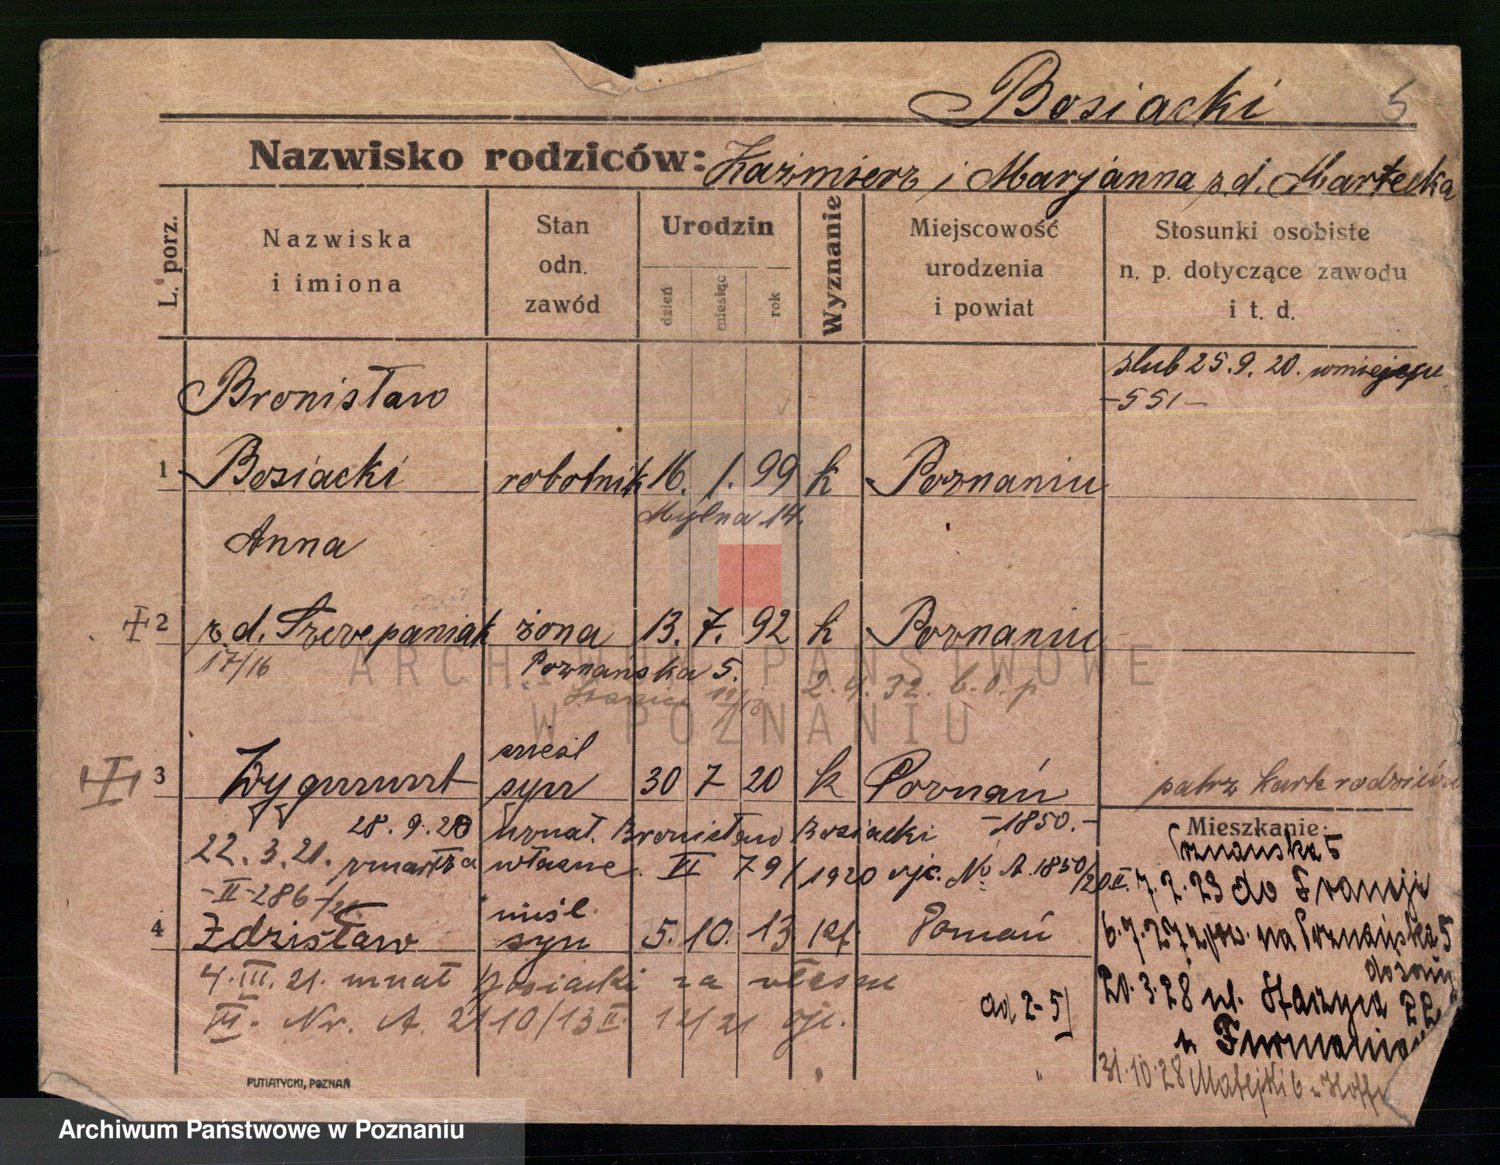 Bosiacki 5
Nazwisko rodziców: Kazimierz i Marjanna z d. Martecka
L. porz.
Nazwiska i imiona
Stan odn. zawód
Urodzin
dzień miesiąc rok
Wyznanie
Miejscowość urodzenia i powiat
Stosunki osobiste n. p. dotyczące zawodu i t. d.
ślub 25.9.20.
-551-
Bronisław
1 Bosiacki robotnik 16. 1. 99 k Poznaniu
Mylna 14.
Anna
2 z d. Szczepaniak żona 13. 7. 92 k Poznaniu
17/16 Poznańska 5.
2.4.32.
ARCHIWUM PAŃSTWOWE
W POZNANIU
nieśl
3 Zygmunt syn 30 7 20 k Poznań
patrz kartę rodziców
28.9.20 uznał. Bronisław Bosiacki -1850.-
22.3.21. zmarł za własne. VI 79/1920 ojc. No A. 1850/20 II.
-II-286/21.
nieśl.
4 Zdzisław syn 5. 10. 13 kf. Poznań
4.III.21. uznał Bosiacki za własne
VI. Nr. A. 2110/13 II 12/21 ojc.
ad 2-5
Mieszkanie:
Poznańska 5
7.2.23 do Francji
6.7.27 na Poznańska 5
do żony
20.3.28 ul. Staszyca 22
u Furmaniak
31.10.28 Matejki 6 u
PUTIATYCKI, POZNAŃ
Archiwum Państwowe w Poznaniu